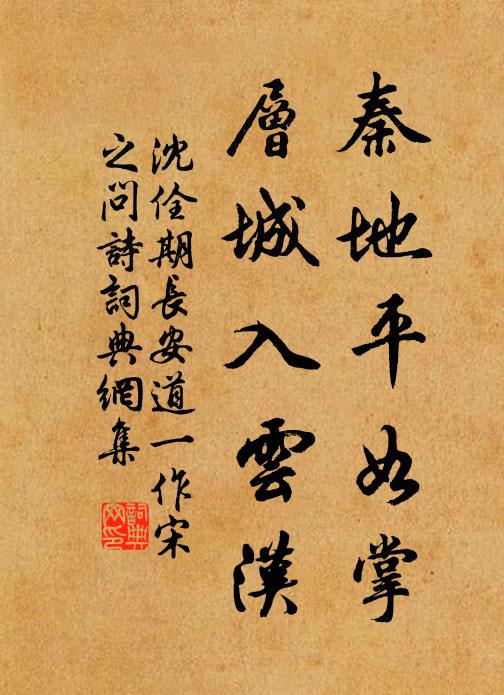 秦地平如掌
層城入雲漢
沈佺期長安道一作宋
之问詩詞典網集
詞典
网印